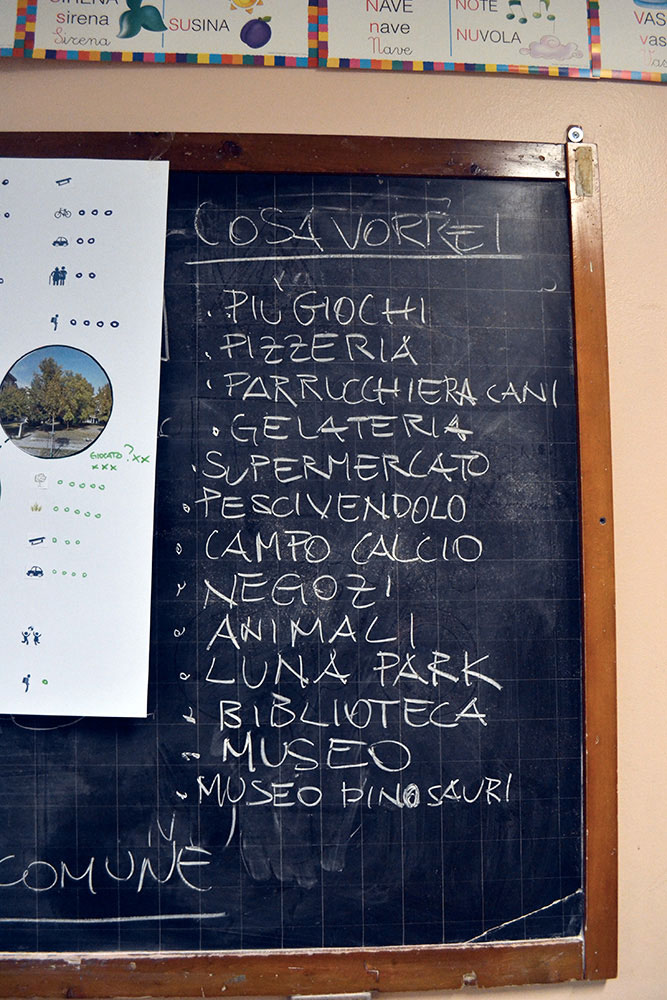 SIRENA
sirena
Sirena
SUSINA
NAVE
nave
n
nave
Nave
NOTE
NUVOLA
VAS
vas
Vas
COSA VORREI
PIÙ GIOCHI
PIZZERIA
PARRUCCHIERA CANI
GELATERIA
SUPERMERCATO
PESCIVENDOLO
CAMPO CALCIO
NEGOZI
ANIMALI
LUNA PARK
BIBLIOTECA
MUSEO
MUSEO DINOSAURI
GIOCATO?xx
xxx
COMUNE